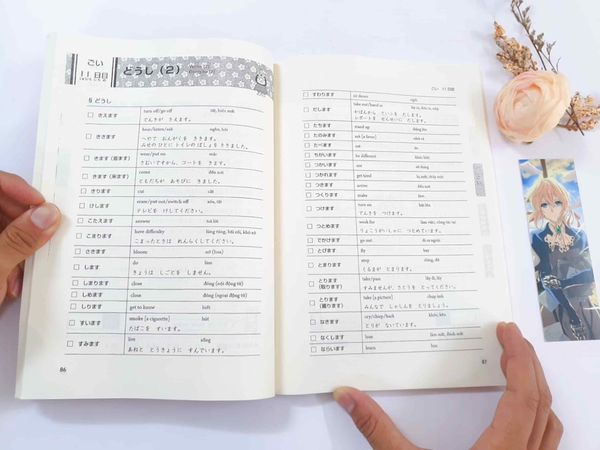 ごい
11日目
どうし (2)
§ どうし
きえます turn off/go off tắt, biến mất
でんきが きえます。
ききます hear/listen/ask nghe, hỏi
へやで おんがくを ききます。
みせのひとに トイレのばしょを ききました。
きます (着ます) wear/put on mặc
さむいですから、コートを きます。
きます (来ます) come đến
ともだちが あそびに きました。
きります cut cắt
けします erase/put out/switch off xóa, tắt
テレビを けしてください。
こたえます answer trả lời
こまります have difficulty
こまったときは れんらくしてください。
さきます bloom nở (hoa)
します do làm
きょうは しごとを しません。
しまります close đóng
しめます close đóng
しります get to know biết
すいます smoke [a cigarette] hút
たばこを すいます。
すみます live sống
あねと とうきょうに すんでいます。
86
ごい 11日目
すわります sit down ngồi
だします take out/hand in
かばんから さいふを だします。
レポートを せんせいに だします。
たちます stand up đứng lên
たのみます ask [a favor] nhờ vả
たべます eat ăn
ちがいます be different khác biệt
つかいます use
つかれます get tired
つきます arrive đến nơi
つくります make làm
つけます turn on bật lên
でんきを つけます。
つとめます work for
りょうこうがいしゃに つとめています。
でかけます go out đi ra ngoài
とびます fly bay
とまります stop dừng, đỗ
くるまが とまります。
とります (取ります) take/pass lấy đi, lấy
すみませんが、さとうを とってください。
とります (撮ります) take [a picture] chụp ảnh
みんなで しゃしんを とりましょう。
なきます cry/chirp/bark khóc, kêu
とりが ないています。
なくします lose làm mất, đánh mất
ならいます learn học
87